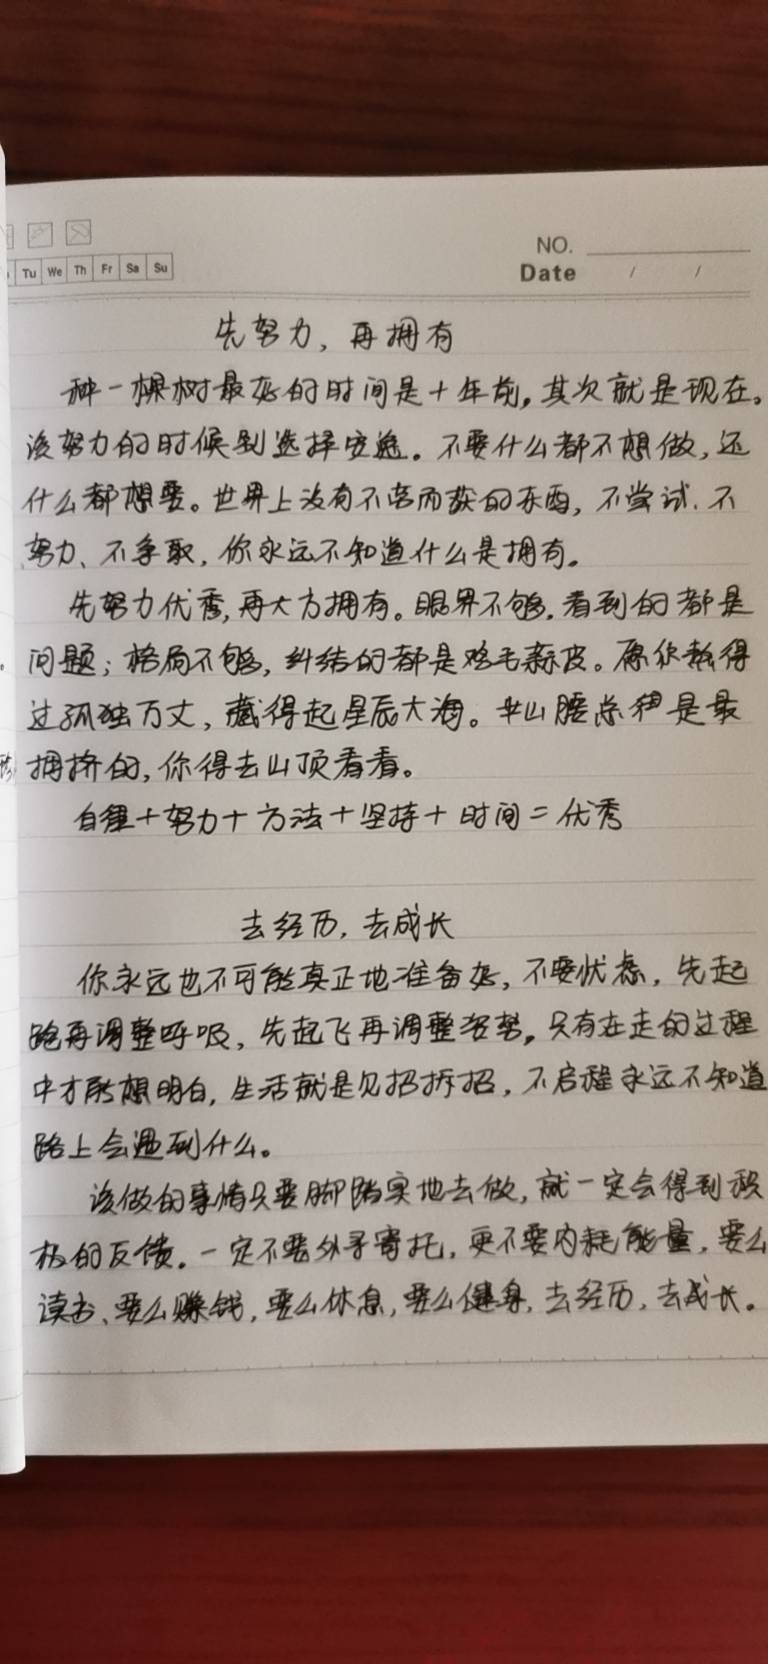 NO.
Tu We Th Fr Sa Su
Date / /
先努力，再拥有
种一棵树最好的时间是十年前，其次就是现在。
该努力的时候别选择安逸。不要什么都不想做，还
什么都想要。世界上没有不劳而获的东西，不尝试、不
努力、不争取，你永远不知道什么是拥有。
先努力优秀，再大方拥有。眼界不够，看到的都是
问题；格局不够，纠结的都是鸡毛蒜皮。愿你熬得
过孤独万丈，藏得起星辰大海。半山腰总是最
拥挤的，你得去山顶看看。
自律＋努力＋方法＋坚持＋时间＝优秀
去经历，去成长
你永远也不可能真正地准备好，不要忧虑，先起
跑再调整呼吸，先起飞再调整姿势。只有在走的过程
中才能想明白，生活就是见招拆招，不启程永远不知道
路上会遇到什么。
该做的事情只要脚踏实地去做，就一定会得到积
极的反馈。一定不要外寻寄托，更不要内耗能量，要么
读书、要么赚钱，要么休息，要么健身，去经历，去成长。